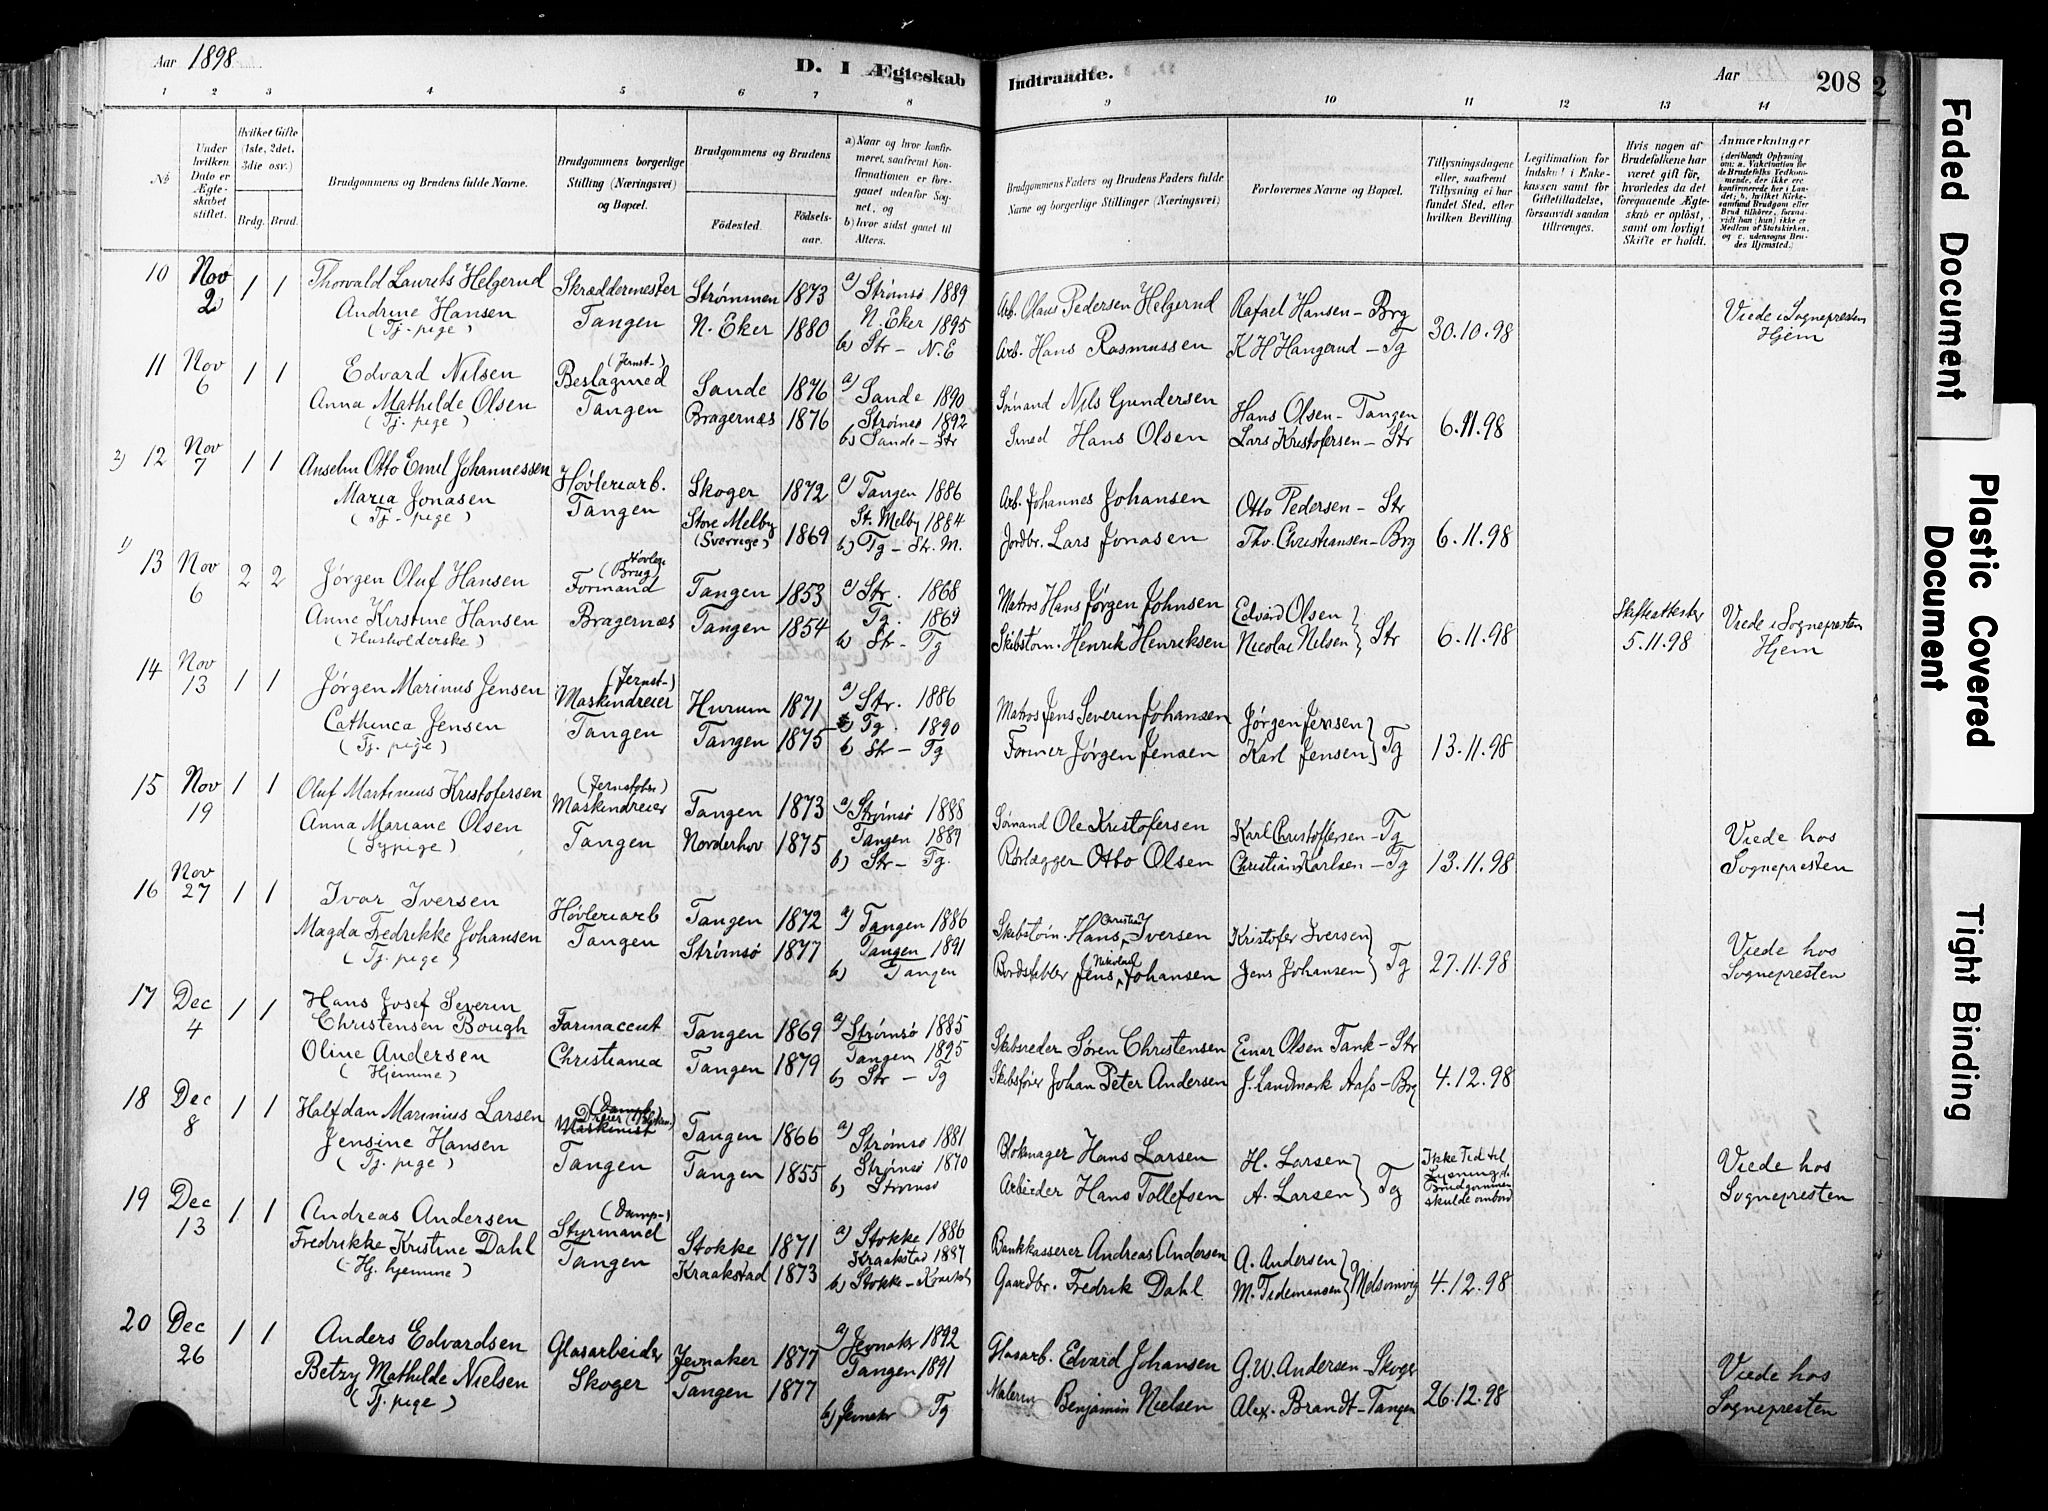 Aar 1898
D. I Ægteskab Indtraadte. Aar 208
1 2 3 4 5 6 7 8 9 10 11 12 13 14
No
Under hvilken Dato er Ægteskabet stiftet.
Hvilket Gifte (1ste, 2det, 3die osv.)
Brdg. Brud.
Brudgommens og Brudens fulde Navne.
Brudgommens borgerlige Stilling (Næringsvei) og Bopæl.
Brudgommens og Brudens
Fødested. Fødselsaar.
a) Naar og hvor konfirmeret, saafremt Konfirmationen er foregaaet udenfor Sognet, og
b) hvor sidst gaaet til Alters.
Brudgommens Faders og Brudens Faders fulde Navne og borgerlige Stillinger (Næringsvei)
Forlovernes Navne og Bopæl.
Tillysningsdagene eller, saafremt Tillysning ei har fundet Sted, efter hvilken Bevilling.
Legitimation for Indskud i Enkekassen samt for Giftetilladelse, forsaavidt saadan tiltrænges.
Hvis nogen af Brudefolkene har været gift før, hvorledes da det foregaaende Ægteskab er opløst, samt om lovligt Skifte er holdt.
Anmærkninger
10 Nov 2 1 1 Thorvald Laurits Helgerud Skræddermester Strømmen 1873 a) Strømsø 1889 Arb. Olaus Pedersen Helgerud Rafael Hansen - Brg 30.10.98 Viede i Sognepresten
Andrine Hansen Tangen N. Eker 1880 N. Eker 1895 Arb. Hans Rasmussen K H Hangerud - Tg Hjem
(Tj-pige) b) Str - N.E
11 Nov 6 1 1 Edvard Nilsen (Jernst-) Beslagmed Sande 1876 a) Sande 1890 Sømand Nils Gundersen Hans Olsen - Tangen 6.11.98
Anna Mathilde Olsen Tangen Bragernæs 1876 Strømsø 1892 Smed Hans Olsen Lars Kristofersen - Str
(Tj. pige) b) Sande - Str
2) 12 Nov 7 1 1 Anselm Otto Emil Johannessen Høvleriarb. Skoger 1872 a) Tangen 1886 Arb. Johannes Johansen Otto Pedersen - Str
Maria Jonasen Tangen Store Melby (Sverrige) 1869 St. Melby 1884 Jordbr. Lars Jonasen Thv. Christiansen - Brg 6.11.98
(Tj-pige) b) Tg - Str. M.
1) 13 Nov 6 2 2 Jørgen Oluf Hansen Formand Tangen 1853 a) Str. 1868 Matros Hans Jørgen Johnsen Edvard Olsen Skifteattester Viede i Sognepresten
Anne Kirstine Hansen Bragernæs Tangen 1854 Tg. 1869 Skibstøm. Henrik Henriksen Nicolai Nelsen } Str 6.11.98 5.11.98 Hjem
(Husholderske) b) Str - Tg
14 Nov 13 1 1 Jørgen Marinus Jensen (Jernst-) Maskindreier Hurum 1871 a) Str. 1886 Matros Jens Severin Johansen Jørgen Jensen
Cathinca Jensen Tangen Tangen 1875 Tg. 1890 Former Jørgen Jensen Karl Jensen } Tg 13.11.98
(Tj. pige) b) Str - Tg
15 Nov 19 1 1 Oluf Martinius Kristofersen Maskindreier Tangen 1873 a) Strømsø 1888 Sømand Ole Kristofersen Karl Christoffersen - Tg Viede hos
Anna Mariane Olsen Tangen Norderhov 1875 Tangen 1889 Rørlægger Otto Olsen Christian Karlsen - Tg 13.11.98 Sognepresten
(Sypige) b) Str - Tg.
16 Nov 27 1 1 Ivar Iversen Høvleriarb Tangen 1872 a) Tangen 1886 Skibstøm. Hans Christian Iversen Kristofer Iversen Viede hos
Magda Fredrikke Johansen Tangen Strømsø 1877 Tangen 1891 Bordstabler Jens Nikolai Johansen Jens Johansen } Tg 27.11.98 Sognepresten
(Tj. pige) b) Tangen
17 Dec 4 1 1 Hans Josef Severin
Christensen Bough Farmaceut Tangen 1869 a) Strømsø 1885 Skibsreder Søren Christensen Einar Olsen Tank - Str
Oline Andersen Christiania Tangen 1879 Tangen 1895 Skibsfører Johan Peter Andersen J. Landmark Aass - Brg 4.12.98
(Hjemme) b) Str - Tg
18 Dec 8 1 1 Halfdan Marinius Larsen Tangen 1866 a) Strømsø 1881 Blokmager Hans Larsen H. Larsen Ikke Tid til Viede hos
Jensine Hansen Tangen Tangen 1855 Strømsø 1870 Arbeider Hans Tollefsen A. Larsen } Tg Lysning, da Brudgommen skulde ombord Sognepresten
(Tj. pige) b) Strømsø
19 Dec 13 1 1 Andreas Andersen (Damp-) Styrmand Stokke 1871 a) Stokke 1886 Bankkasserer Andreas Andersen A. Andersen
Fredrikke Kristine Dahl Tangen Kraakstad 1873 Kraakstad 1887 Gaardbr. Fredrik Dahl M. Tidemansen } Melsomvig 4.12.98
(Hj. hjemme) b) Stokke - Kraakst
20 Dec 26 1 1 Anders Edvardsen Glasarbeider Jevnaker 1877 a) Jevnakr 1892 Glasarb. Edvard Johansen G.W. Andersen - Skoger Viede hos
Betzy Mathilde Nielsen Skoger Tangen 1877 Tangen 1891 Malerm Benjamin Nielsen Alex. Brandt - Tangen 26.12.98 Sognepresten
(Tj. pige) b) Jevnakr Tg
Faded Document
Plastic Covered Document
Tight Binding